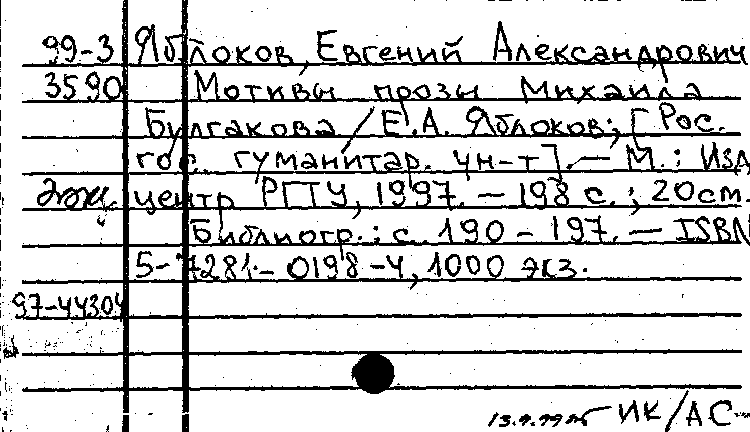 99-3 Яблоков, Евгений Александрович
3590 Мотивы прозы Михаила
Булгакова / Е.А. Яблоков; [Рос.
гос. гуманитар. ун-т]. — М.: Изд.
центр РГГУ, 1997. — 198 с.; 20см.
Библиогр.: с. 190-197. — ISBN
5-7281-0198-4, 1000 экз.
97-44304
13.9.99 ИК/АС